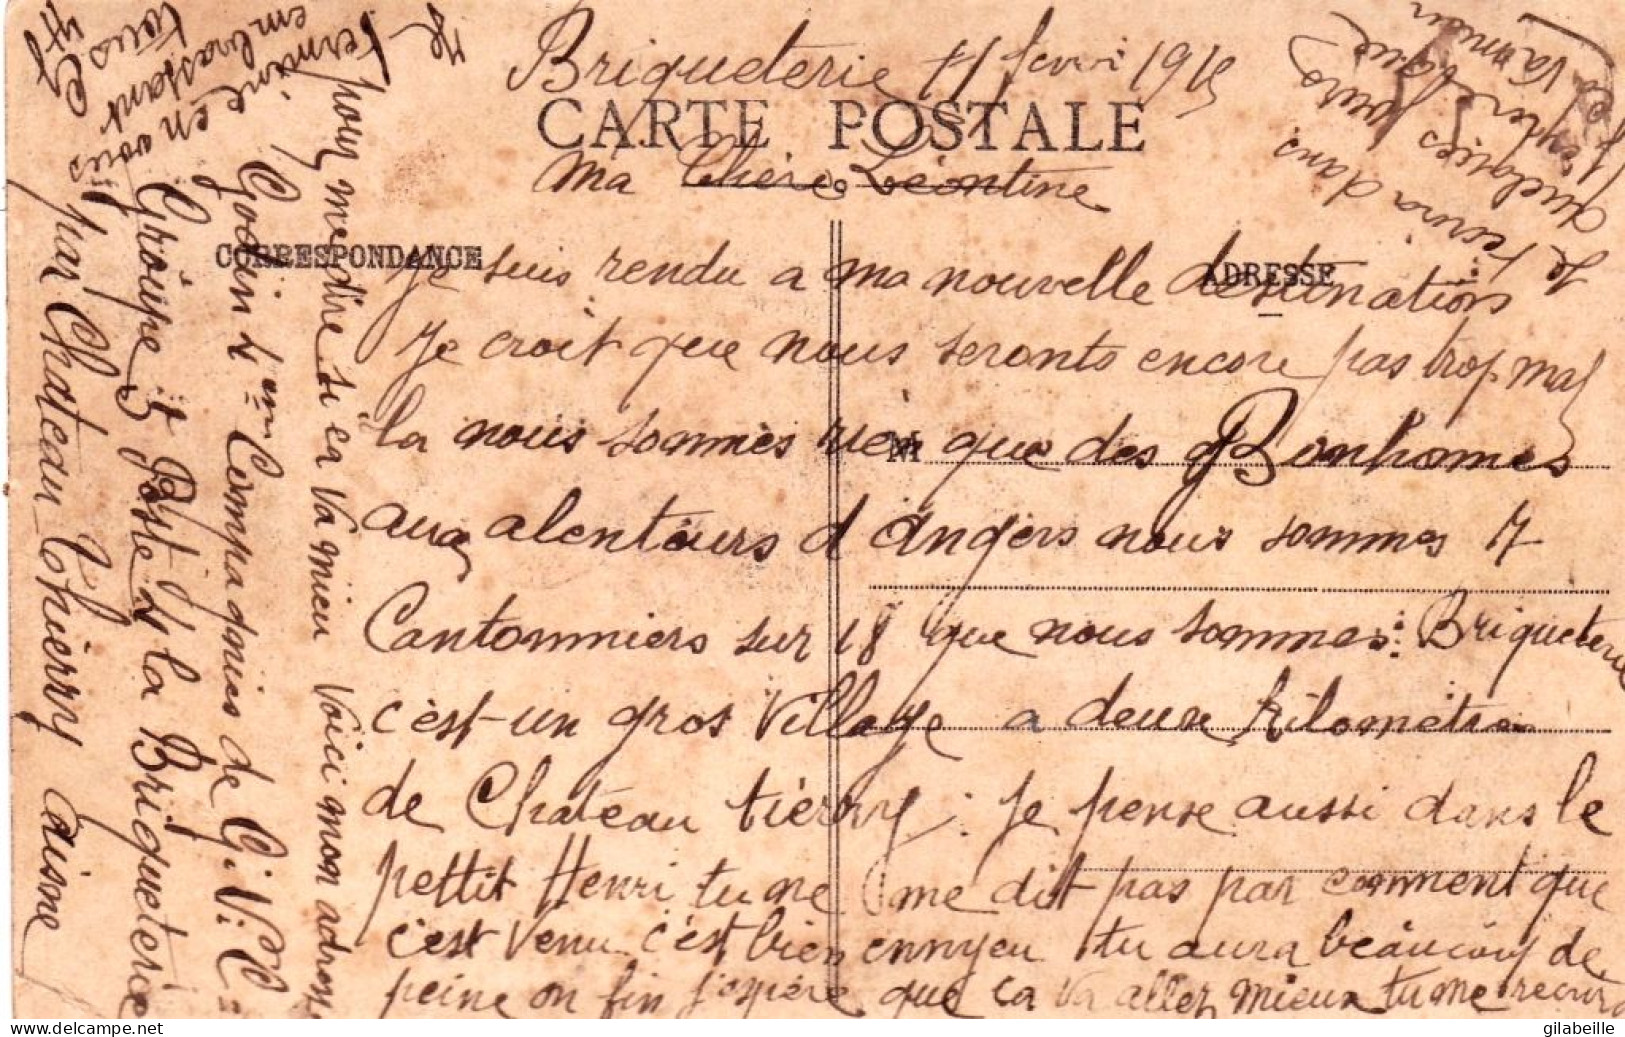 Briqueterie 11 fevri 1915
CARTE POSTALE
Ma Chère Léontine
CORRESPONDANCE
ADRESSE
Je suis rendu a ma nouvelle destination
Je croit que nous seronts encore pas trop mal
la nous sommes rien que des Bonhomes
M
aux alentours d angers nous sommes 7
Cantonniers sur 18 que nous sommes: Briqueterie
c'est un gros village a deux kilometres
de Chateau tierry: je pense aussi dans le
pettit Henri tu ne me dit pas par comment que
c'est venu c'est bien ennyeu tu aura beaucoup de
peine on fin j'espère que ca va aller mieux tu me recrira
pour me dire si ca va mieu Voici mon adresse
Godin 4em Compagnies de G. V. C =
Groupe Poste 4 la Briqueterie
par Chateau Thierry aisne
Je termine en vous
embrassant
tous
Je t'ecrira dans
quelques jours